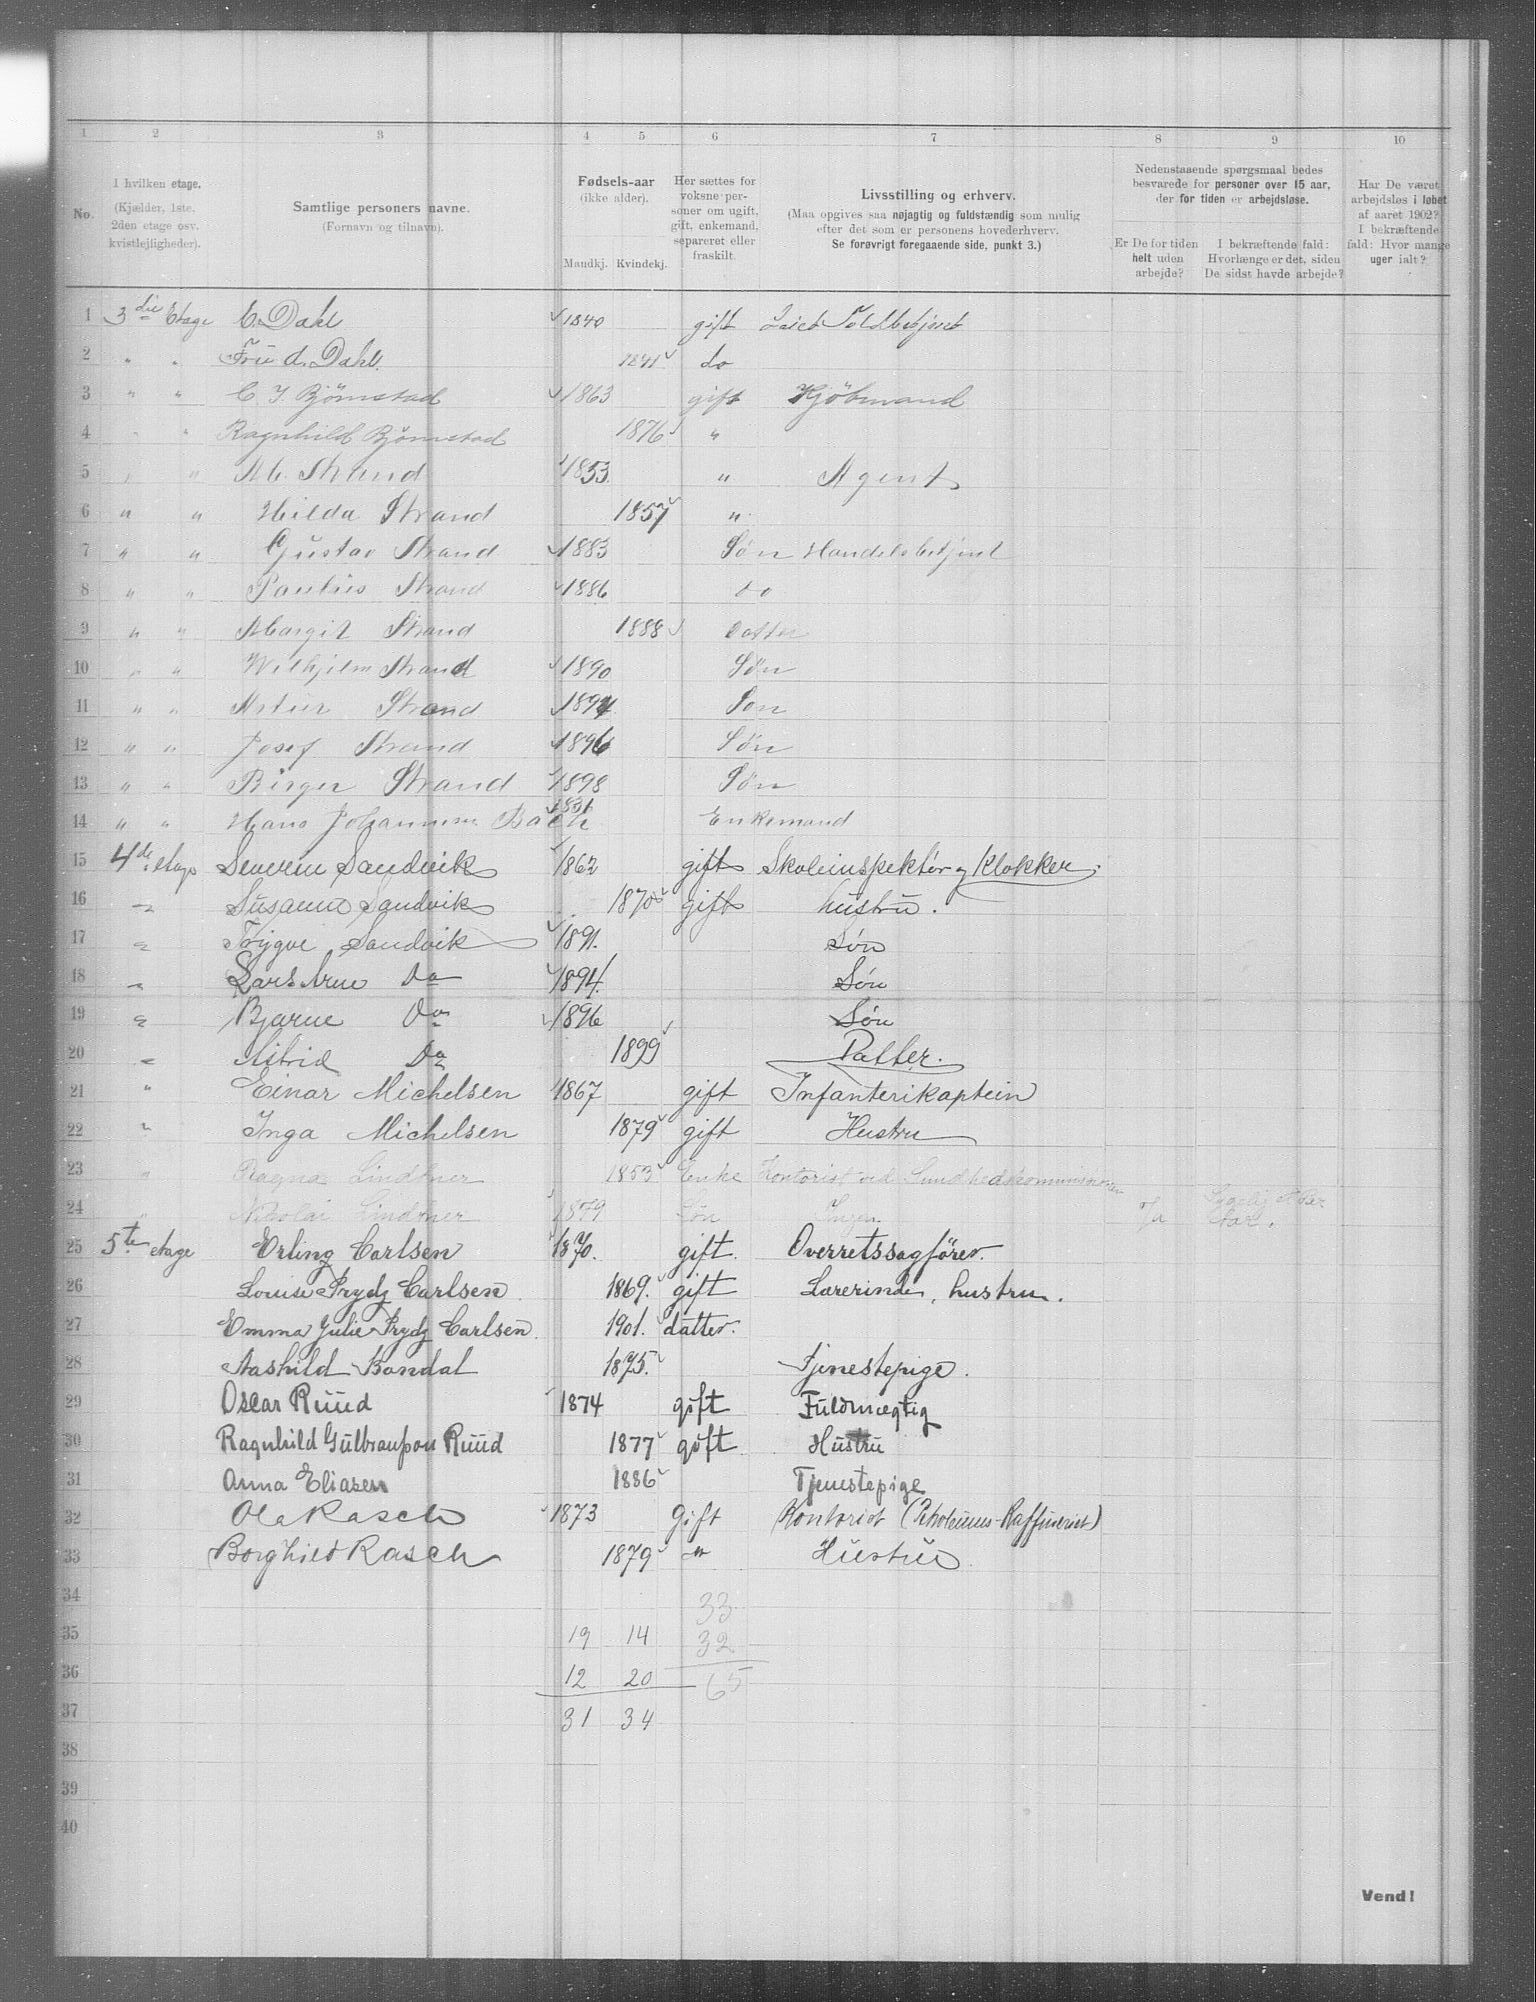 1 2 3 4 5 6 7 8 9 10
No.
I hvilken etage.
(Kjælder, 1ste.
2den etage osv.
kvistlejligheder).
Samtlige personers navne.
(Fornavn og tilnavn).
Fødsels-aar
(ikke alder).
Mandkj. Kvindekj.
Her sættes for
voksne per-
soner om ugift,
gift, enkemand,
separeret eller
fraskilt.
Livsstilling og erhverv.
(Maa opgives saa nøjagtig og fuldstændig som mulig
efter det som er personens hovederhverv.
Se forøvrigt foregaaende side, punkt 3.)
Nedenstaaende spørgsmaal bedes
besvarede for personer over 15 aar,
der for tiden er arbejdsløse.
Er De for tiden
helt uden
arbejde?
I bekræftende fald:
Hvorlænge er det, siden
De sidst havde arbejde?
Har De været
arbejdsløs i løbet
af aaret 1902?
I bekræftende
fald: Hvor mange
uger ialt?
1 3die Etage C. Dahl 1840 gift Toldbetjent
2 " " Fru d. Dahl. 1841 do
3 " " C J. Bjørnstad 1863 gift Kjöbmand
4 " " Ragnhild Bjørnstad 1876 "
5 " " M. Strand 1853 " Agent
6 " " Hilda Strand 1857 "
7 " " Gustav Strand 1883 Sön Handelsbetjent
8 " " Paulus Strand 1886 do
9 " " Margit Strand 1888 Datter
10 " " Wilhjelm Strand 1890 Sön
11 " " Artur Strand 1894 Son
12 " " Josef Strand 1896 Sön
13 " " Birger Strand 1898 Sön
14 " " Hans Johannesen Bach 1831 Enkemand
15 4de etage Severin Sandvik 1862 gift Skoleinspektør og Klokker.
16 " Susanna Sandvik 1870 gift hustru.
17 " Trygve Sandvik 1891. Søn
18 " Lars Arne Do 1894. Søn
19 " Bjarne Do 1896 Søn
20 " Astrid Do 1899 Datter.
21 " Einar Michelsen 1867 gift Infanterikaptein
22 " Inga Michelsen 1879 gift Hustru
23 " Ragna Lindtner 1853 Enke Kontorist ved Sundhedskommissionen
24 " Nikolai Lindtner 1879 Søn Ja
25 5te etage Erling Carlsen 1870. gift. Overretssagfører.
26 Louise Prydz Carlsen. 1869. gift Lærerinde, hustru.
27 Emma Julie Prydz Carlsen. 1901. datter.
28 Aashild Bondal 1875. Tjenestepige.
29 Oscar Ruud 1874 gift Fuldmægtig
30 Ragnhild Gulbranson Ruud 1877 gift Hustru
31 Anna Eliasen 1886 Tjenestepige
32 Ole Rasch 1873 Gift Kontorist (Petroleums-Raffineriet)
33 Borghild Rasch 1879 " Hustru
34 33
35 19 14 32
36 12 20 65
37 31 34
38
39
40
Vend!